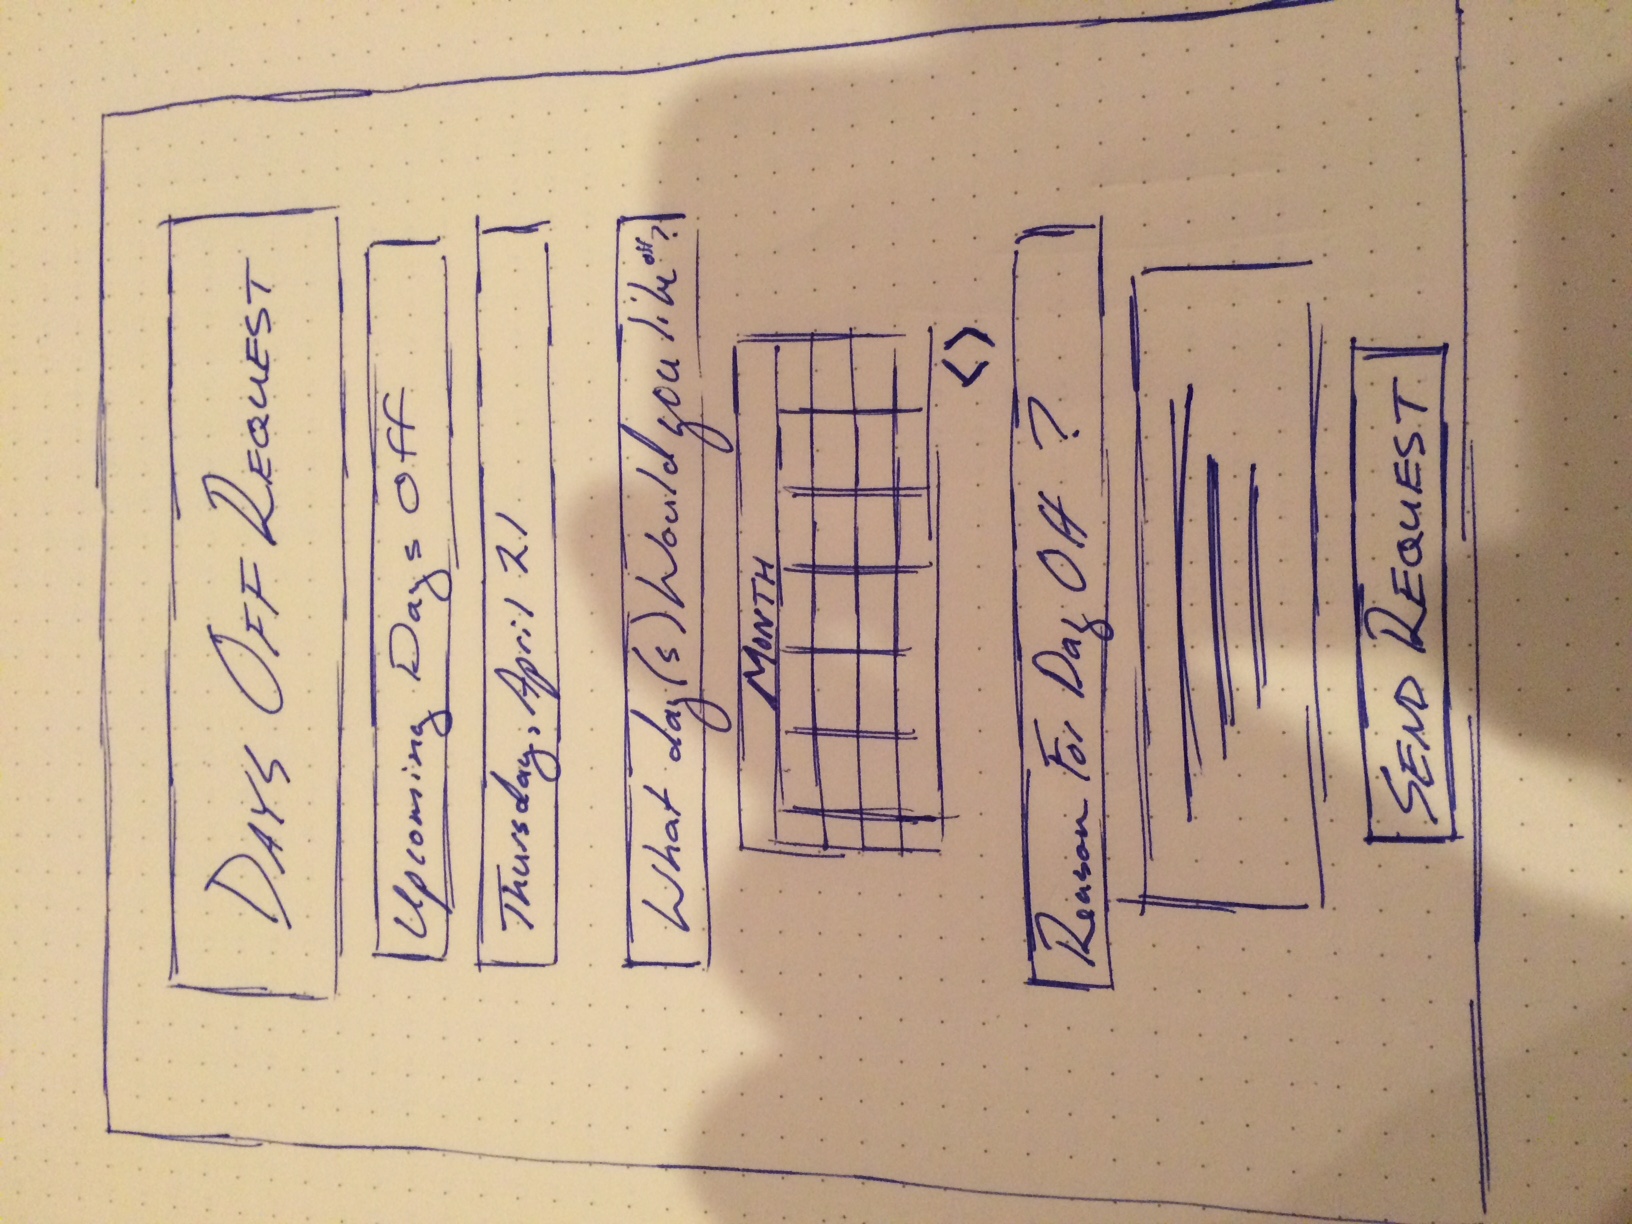 DAYS OFF REQUEST
Upcoming Days Off
Thursday, April 21
What day(s) Would you like off?
MONTH
< >
Reason For Day Off ?
SEND REQUEST